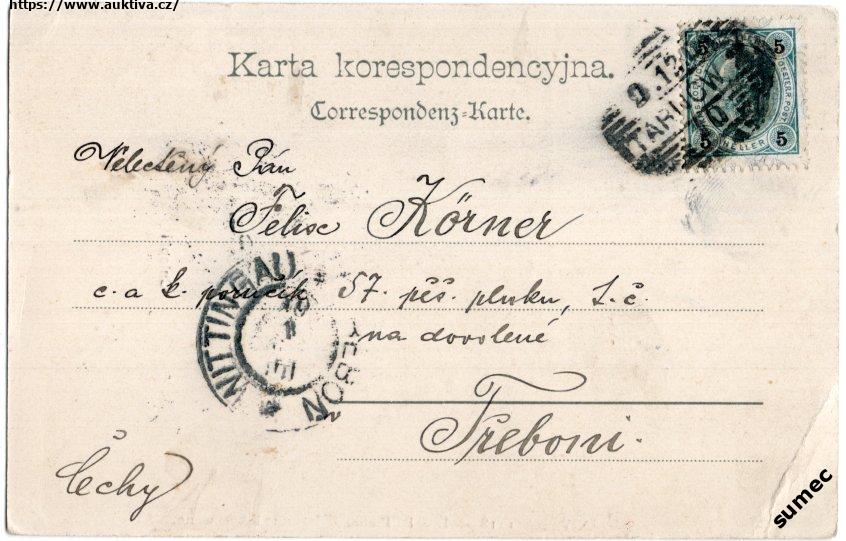 https://www.auktiva.cz/
Karta korespondencyjna.
Correspondenz-Karte.
5 5
KELLER
5 5
9.12
TARNOW
Velectěný Pán
Felix Körner
c. a k. poručík 57. pěš. pluku, t. č.
na dovolené
Třeboni.
Čechy
WITTINGAU
TŘEBOŇ
sumec